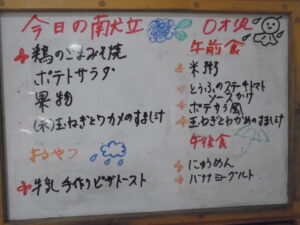 今日の献立
鶏のごまみそ焼
ポテトサラダ
果物
(米)玉ねぎとワカメのすまし汁
おやつ
牛乳 手作りピザトースト
0才児
午前食
米粥
とうふのステーキトマト
ソースかけ
ポテサラ風
玉ねぎとわかめのすまし汁
午後食
にゅうめん
バナナヨーグルト